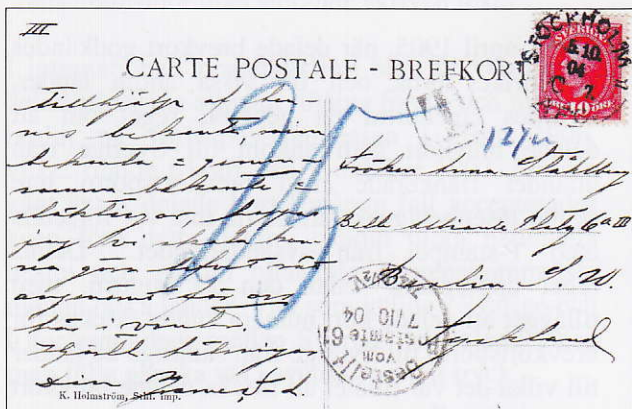 III
CARTE POSTALE - BREFKORT
SVERIGE
10 ÖRE
STOCKHOLM
6.10
04
T
25
tillhjälp af hen-
nes bekanta min
bekanta = gemen-
samma bekanta =
släktingar, hoppas
jag vi skola kun-
na göra lifvet rätt
angenämt för oss
här i vinter.
Fröken Anna Ståhlberg
Belle Alliance Platz 6a III
Berlin S.W.
Tyskland
Bestellt
vom
Postamte 61
7/10 04
K. Holmström, Sthl. imp.